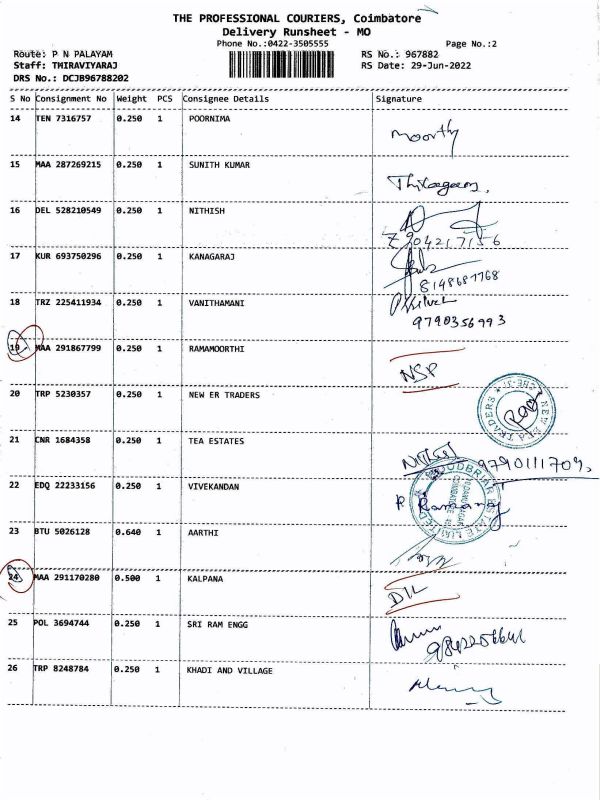 THE PROFESSIONAL COURIERS, Coimbatore
Delivery Runsheet - MO
Phone No.:0422-3505555
Page No.:2
Route: P N PALAYAM
RS No.: 967882
Staff: THIRAVIYARAJ
RS Date: 29-Jun-2022
DRS No.: DCJB96788202
S No Consignment No Weight PCS Consignee Details Signature
14 TEN 7316757 0.250 1 POORNIMA
Moorthy
15 MAA 287269215 0.250 1 SUNITH KUMAR
16 DEL 528210549 0.250 1 NITHISH
17 KUR 693750296 0.250 1 KANAGARAJ
8148681768
18 TRZ 225411934 0.250 1 VANITHAMANI
9790356993
19 MAA 291867799 0.250 1 RAMAMOORTHI
NSP
20 TRP 5230357 0.250 1 NEW ER TRADERS
NEW ERA TRADERS
21 CNR 1684358 0.250 1 TEA ESTATES
9790111709
22 EDQ 22233156 0.250 1 VIVEKANDAN
23 BTU 5026128 0.640 1 AARTHI
24 MAA 291170280 0.500 1 KALPANA
DIL
25 POL 3694744 0.250 1 SRI RAM ENGG
26 TRP 8248784 0.250 1 KHADI AND VILLAGE